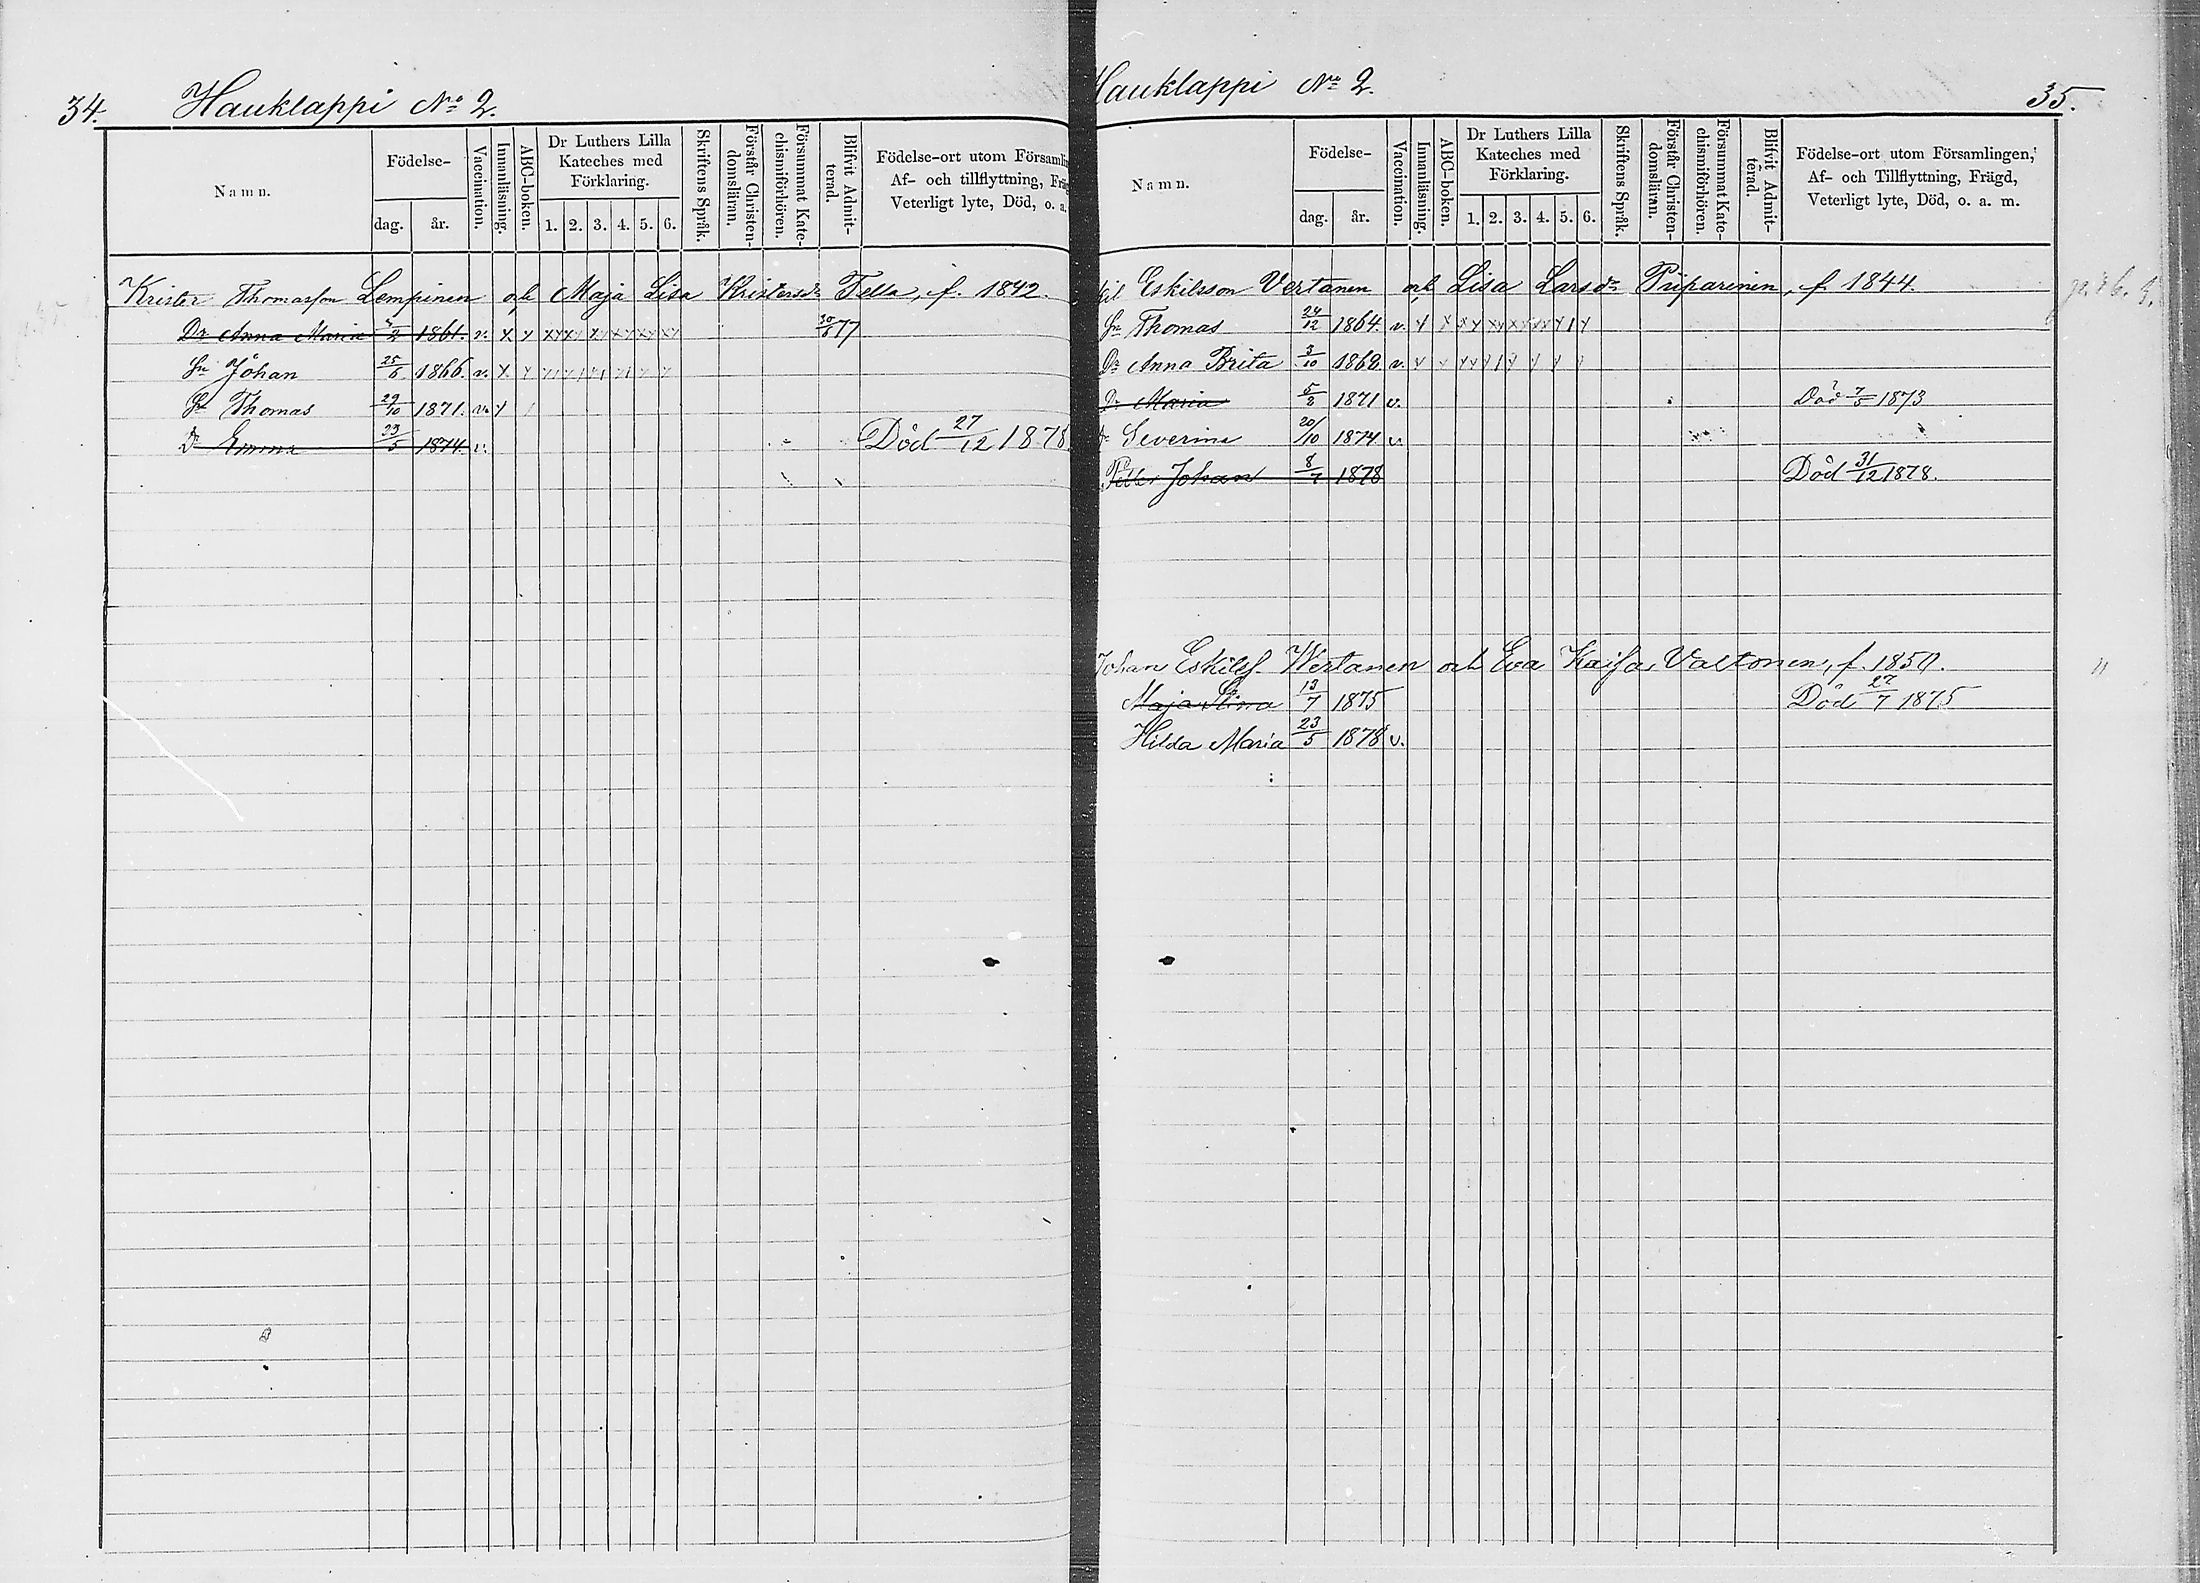 34. Hauklappi No 2.
Namn.
Födelse-
dag. år.
Vaccination.
Innanläsning.
ABC-boken.
Dr Luthers Lilla
Kateches med
Förklaring.
1. 2. 3. 4. 5. 6.
Skriftens Språk.
Förstår Christen-
domsläran.
Försummat Kate-
chismiförhören.
Blifvit Admit-
terad.
Födelse-ort utom Församlin
Af- och tillflyttning, Fräg
Veterligt lyte, Död, o. a.
Krister Thomasson Lempinen och Maja Lisa Kristersdr Tella, f. 1842.
Dr Anna Maria 1861. v. x y xy xy xy xy xy xy 30/6 77
Sn Johan 25/5 1866. v. x y
Sn Thomas 29/10 1871. v. y
Dr Emma 23/5 1874. v. Död 27/12 1878.
Hauklappi No 2. 35.
Namn.
Födelse-
dag. år.
Vaccination.
Innanläsning.
ABC-boken.
Dr Luthers Lilla
Kateches med
Förklaring.
1. 2. 3. 4. 5. 6.
Skriftens Språk.
Förstår Christen-
domsläran.
Försummat Kate-
chismiförhören.
Blifvit Admit-
terad.
Födelse-ort utom Församlingen,
Af- och Tillflyttning, Frägd,
Veterligt lyte, Död, o. a. m.
kil Eskilsson Vertanen och Lisa Larsdr Piiparinen, f. 1844.
Sn Thomas 24/12 1864. v. y x
Dr Anna Brita 3/10 1868. v. y y
Dr Maria 5/8 1871 v. Död 7/5 1873
Severina 20/10 1874 v.
Petter Johan 8/7 1878 Död 31/12 1878.
Johan Eskilss. Wertanen och Eva Kaisa Valtonen, f. 1850.
Maja Stina 13/7 1875 Död 27/7 1875
Hilda Maria 23/5 1878 v.